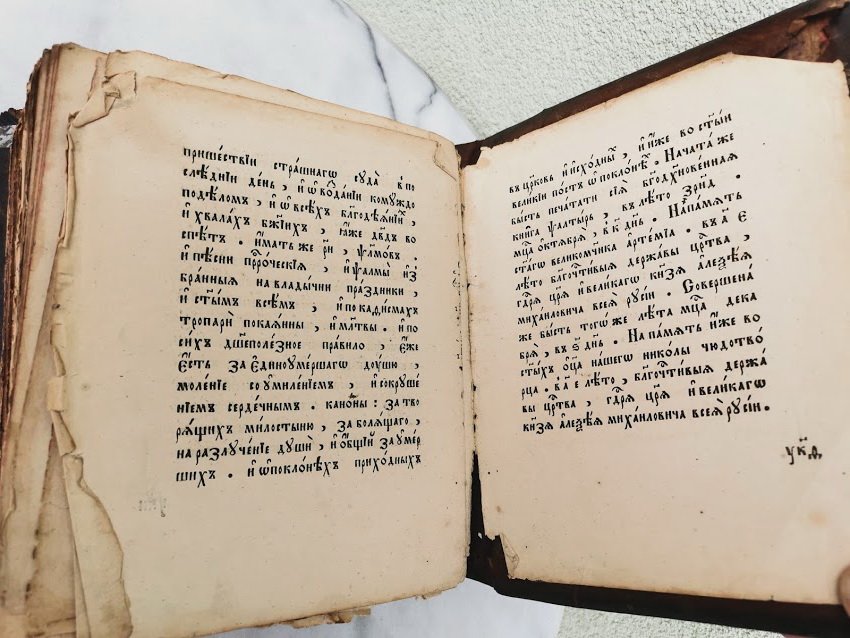 прише́ствїи стра́шнагѡ сꙋда̀ в̾по
слѣ́днїи де́нь, и҆ ѡ҆ возда́нїи комꙋ́ждо
по дѣло́мъ, и҆ ѡ҆ всѣ́хъ бл҃годѣѧ́нїи,
и҆ хвала́хъ бж҃їихъ, ꙗ҆́же дв҃дъ во
спѣ́тъ. и҆́мать же рн҃ ѱл҃мѡ́въ.
и҆ пѣ́сни прⷪ҇ро́ческїѧ, и҆ ѱалмы̀ и҆з̾
бра́нныѧ на влады́чни пра́здники,
и҆ ст҃ы́мъ всѣ́мъ, и҆ по каѳи́смахъ
тропарѝ покаѧ́нны, и҆ мл҃твы. и҆ по
си́хъ дш҃еполе́зное пра́вило, є҆́же
є҆́сть за є҆дино ᲂу҆ме́ршаго до́ушю,
моле́нїе со ᲂу҆миле́нїемъ, и҆ сокрꙋше́
нїемъ серде́чнымъ. кано́ны: за тво
рѧ́щихъ ми́лостыню, за болѧ́щаго,
на разлꙋче́нїе дꙋшѝ, и҆ ѻ҆́бщїй за ᲂу҆ме́р
шихъ. и҆ ѡ҆ покло́нѣхъ прихо́дныхъ
въ цр҃ковь и҆ и҆схо́дныхъ, и҆ и҆̀же во ст҃ы́и
вели́кїи по́стъ ѡ҆ покло́нѣ. Нача́та же
бы́сть печа́тати сїѧ̀ бг҃одхнове́ннаѧ
кни́га ѱалты́рь, в̾ лѣ́то зрн҃д.
мцⷭ҇а ѻ҆ктѧбрѧ̀, в̾ к҃ дн҃ь. На па́мѧть
ст҃а́гѡ великомч҃ника а҆рте́мїа. в̾ а҃ є҆
лѣ́то бл҃гочⷭ҇ти́выѧ держа́вы црⷭ҇тва,
гдⷭ҇рѧ цр҃ѧ̀ и҆ вели́кагѡ кн҃зѧ а҆леѯѣ́ѧ
миха́иловича всеѧ̀ рꙋсі́и. Соверше́на
же бы́сть тогѡ́же лѣ́та мцⷭ҇а дека
брѧ̀, в̾ ѕ҃ дн҃ь. На па́мѧть и҆́же во
ст҃ы́хъ ѻ҆ц҃а̀ на́шегѡ нико́лы чюдотво́
рца. в̾ а҃ є҆ лѣ́то, бл҃гочⷭ҇ти́выѧ держа́
вы црⷭ҇тва, гдⷭ҇рѧ цр҃ѧ̀ и҆ вели́кагѡ
кн҃зѧ а҆леѯѣ́ѧ миха́иловича всеѧ̀ рꙋсі́и.
ук҃д.